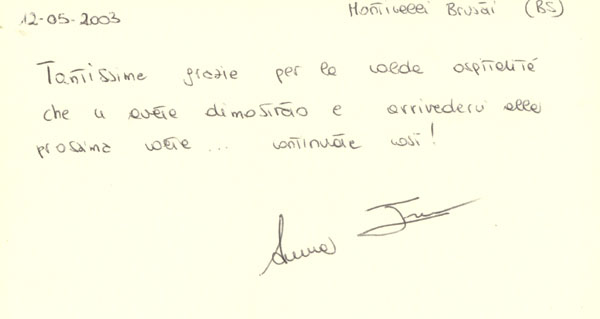 12-05-2003 Monticelli Brusati (BS)
Tantissime grazie per la calda ospitalità
che ci avete dimostrato e arrivederci alla
prossima ... continuate così!
Anna